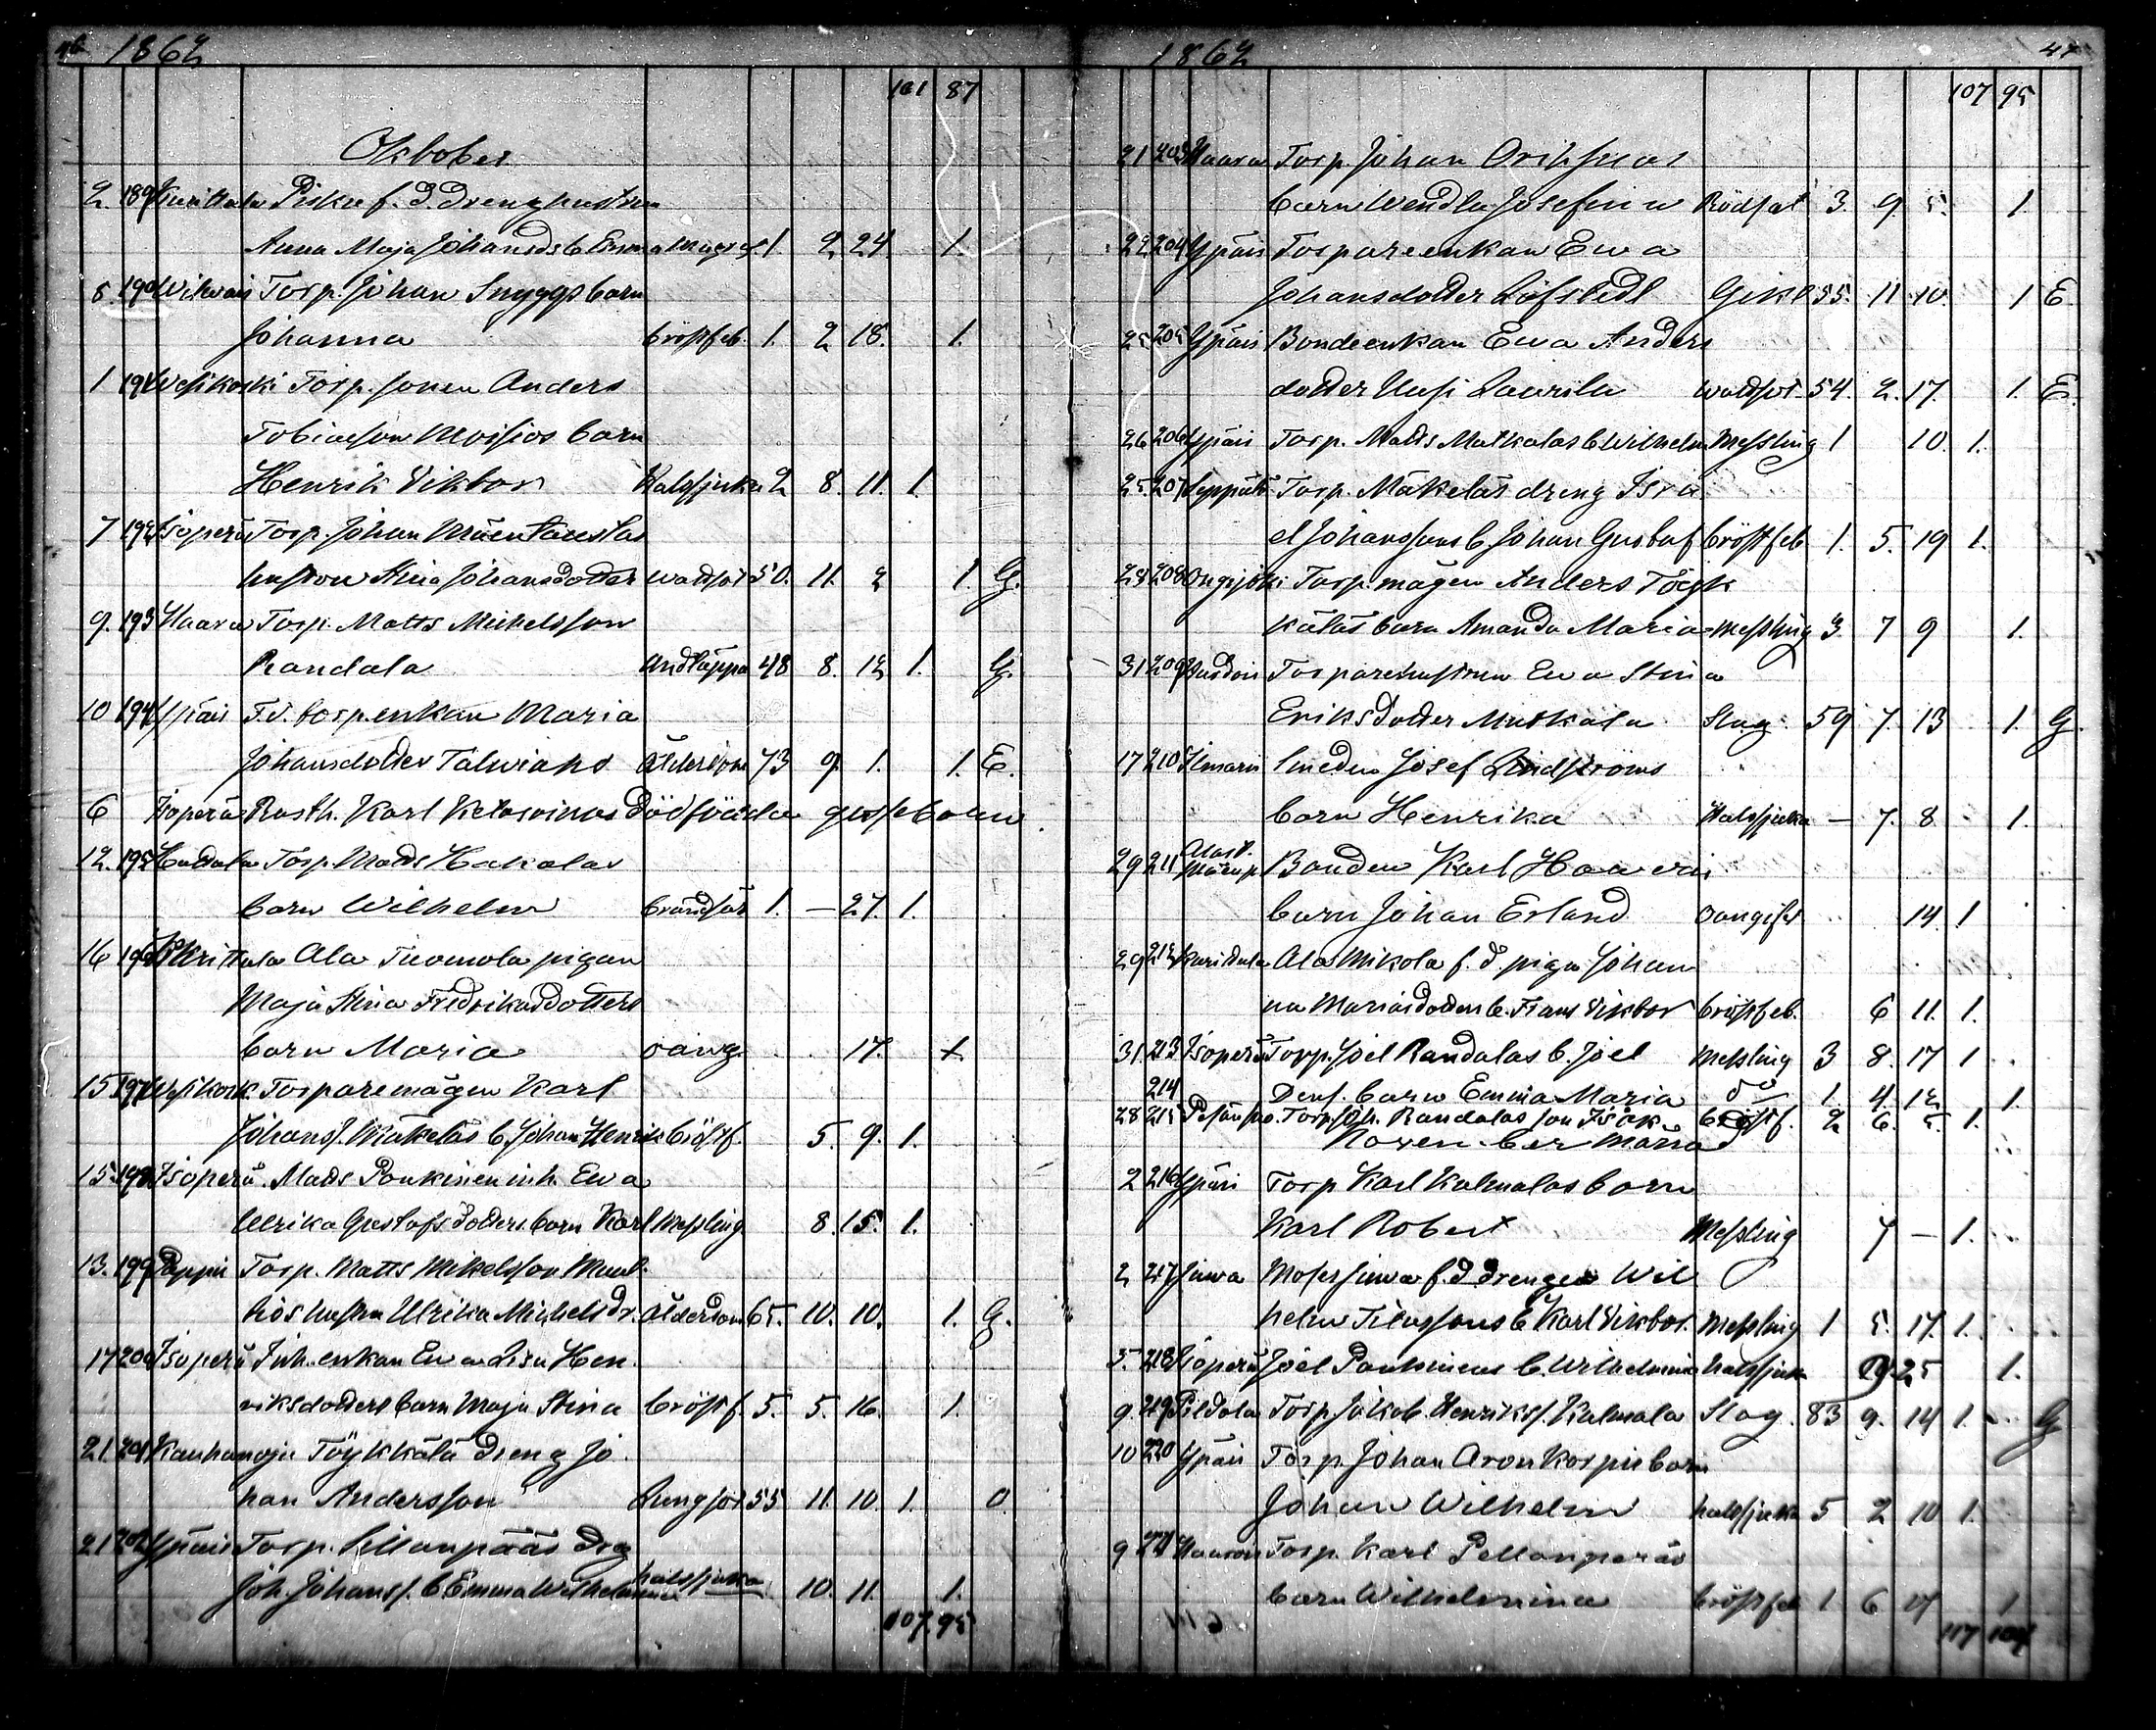 46 1862
101 87
Oktober
2. 189 Kurittula Pisku f. d. drenghustrun
Anna Maja Johansds b. Emma Magsj. 1. 2 24. 1.
8. 190 Wilvais Torp. Johan Snyggs barn
Johanna bröstfeb. 1. 2 18. 1.
1 191 Wesikoski Torp. sonen Anders
Tobiasson Moisios barn
Henrik Viktor Halssjuka 2 8. 11. 1.
7 192 Isoperä Torp. Johan Mäentaustas
hustru Stina Johansdotter Wattsot 50. 11. 2 1 G.
9. 193 Haara Torp. Matts Michelsson
Randala Andtäppa 48 8. 12 1. G.
10 194 Ypäis F.d. torp.enkan Maria
Johansdotter Talwiaho Ålderdom 73 9. 1. 1. E.
6 Isoperä Rusth. Karl Ketarinus Dödfödda gossebarn.
12. 195 Hadala Torp. Mats Hakalas
barn Wilhelm brandsår 1. — 27. 1.
16 196 Kurittula Ala Tuomola pigan
Maja Stina Fredriksdotters
barn Maria oang. 17. 1.
15 197 Wesikosk. Torparemågen Karl
Johanss. Mäkeläs b. Johan Henrik bröstf. 5. 9. 1.
15. 198 Isoperä Mats Pankinen inh. Ewa
Ulrika Gustafsdotters barn Karl Messling. 8. 15. 1.
13. 199 Pappis Torp. Matts Mikelsson
hustru Ulrika Michelsdr. Ålderdom 65. 10. 10. 1. G.
17 200 Isoperä Inh. enkan Ewa Lisa Hen
riksdotters barn Maja Stina bröstf. 5. 5. 16. 1.
21. 201 Kauhanoja Töykkälä dreng Jo
han Andersson Lungsot 55 11. 10. 1. O.
21 202 Ypäis Torp. Sillanpääs drg
Joh. Johanss. b. Emma Wilhelmina halssjuka 10. 11. 1.
107. 95
1862 47
107 95
21 203 Haara Torp. Johan
barn Wendla Josefina Rödsot 3. 9. 5. 1.
22 204 Ypäis Torpareenkan Ewa
Johansdotter Löfstedt Gikt 55. 11 10. 1 E.
25 205 Ypäis Bondeenkan Ewa Anders
dotter Uusi Laurila wattsot 54. 2. 17. 1. E.
26 206 Ypäis Torp. Matts Matkalas b. Wilhelm Messling 1 10. 1.
25. 207 Torp. Mäkeläs dreng Isra
el Johanssons b. Johan Gustaf bröstfeb. 1. 5. 19 1.
28 208 Torp. mågen Anders Töyk
kälas barn Amanda Maria Messling 3 7 9 1.
31 209 Torparehustrun Ewa Stina
Eriksdotter Matkala Slag. 59 7. 13 1. G.
17 210 Ilmaris Smeden Josef Lindströms
barn Henrika Halssjuka — 7. 8. 1.
29 211 Bonden Karl Haaveris
barn Johan Erland oangifs. 14 1
29 212 Kurittula Ala Mikola f. d. pigan Johan
na Mariasdotters b. Frans Viktor bröstfeb. 6 11. 1.
31. 213 Isoperä Torp. Joel Randalas b. Joel Messling 3 8. 17 1
214 Dens. barn Emma Maria do 1. 4. 12 1.
28 215 Torp. Joh. Randalas son Isak bröstf. 2 6. 5. 1.
November Månad
2 216 Ypäis Torp Karl Kalmalas barn
Karl Robert Messling 7 — 1.
2 217 Juwa f. d. drengen Wil
helm b. Karl Viktor. Messling 1 5. 17. 1.
5. 218 Isoperä Joel Pankinens b. Wilhelmina halssjuka 9. 25 1.
9. 219 Torp. Jakob Henrikss. Kalmala Slag. 83 9. 14 1. G
10 220 Ypäis Torp. Johan Aron Korpis barn
Johan Wilhelm halssjuka 5 2 10 1.
9 221 Haara Torp. Karl Pellonperäs
barn Wilhelmina bröstfeb 1 6 17 1
117 104